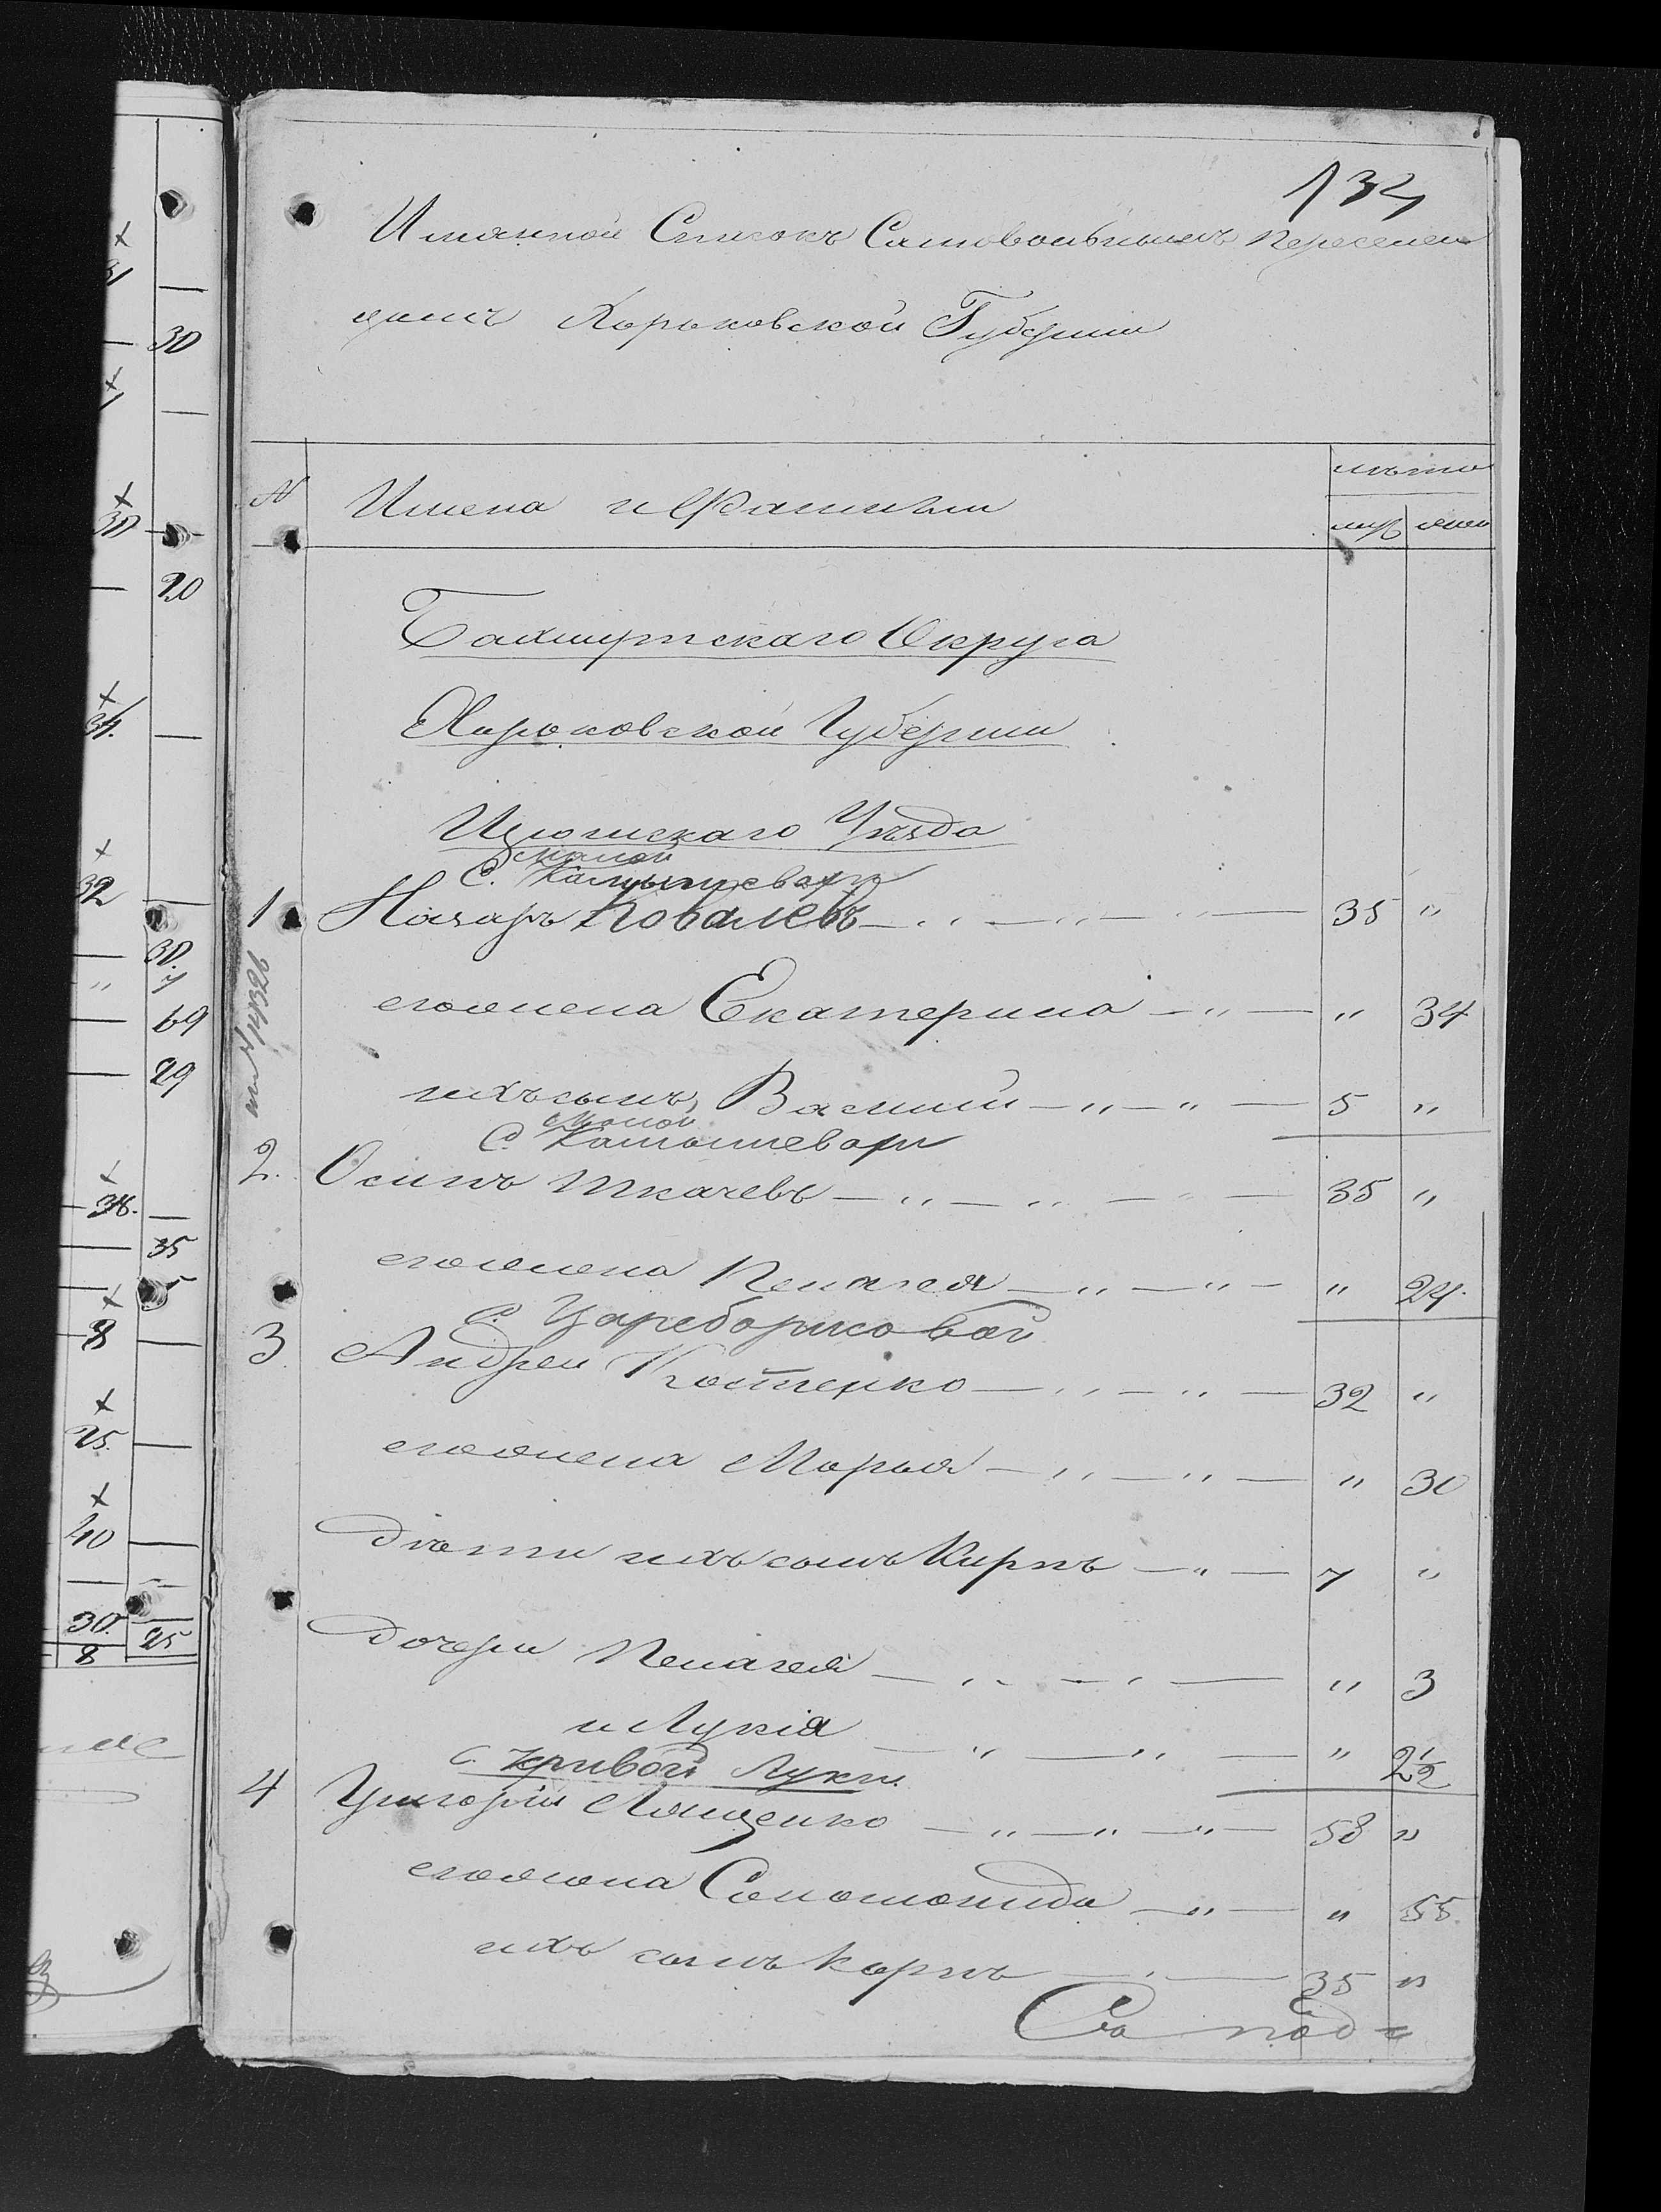 132
Имянной Списокъ Самовольнымъ переселен
цамъ Харьковской Губернии
№ Имена и Фамилии лѣта
муж жен
Бахмутскаго Округа
Харьковской Губернии
Изюмскаго Уѣзда
малой
С. Камышевахи
1 Назаръ Ковалевъ — " — " — " — 35 "
его жена Екатерина — " — " 34
ихъ сынъ Василий — " — " — 5 "
Малой
С. Камышевахи
2. Осипъ Ткачевъ — " — " — " — 35 "
его жена Пелагея — " — " — " 24.
С. Цареборисовой
3 Андрей Костенко — " — " — 32 "
его жена Марья — " — " — " 30
Дѣти ихъ сынъ Карпъ — " — 7 "
Дочери Пелагея — " — " — " 3
и Лукія — " — " — " 2½
С. Кривой Луки
4 Григорій Лященко — " — " — " — 58 "
его жена Соломонида — " — " 55.
ихъ сынъ Карпъ — " — 35 "
№ 14326
30
20
34.
32
30.
69
29
35
8
25.
40
30.
8 25